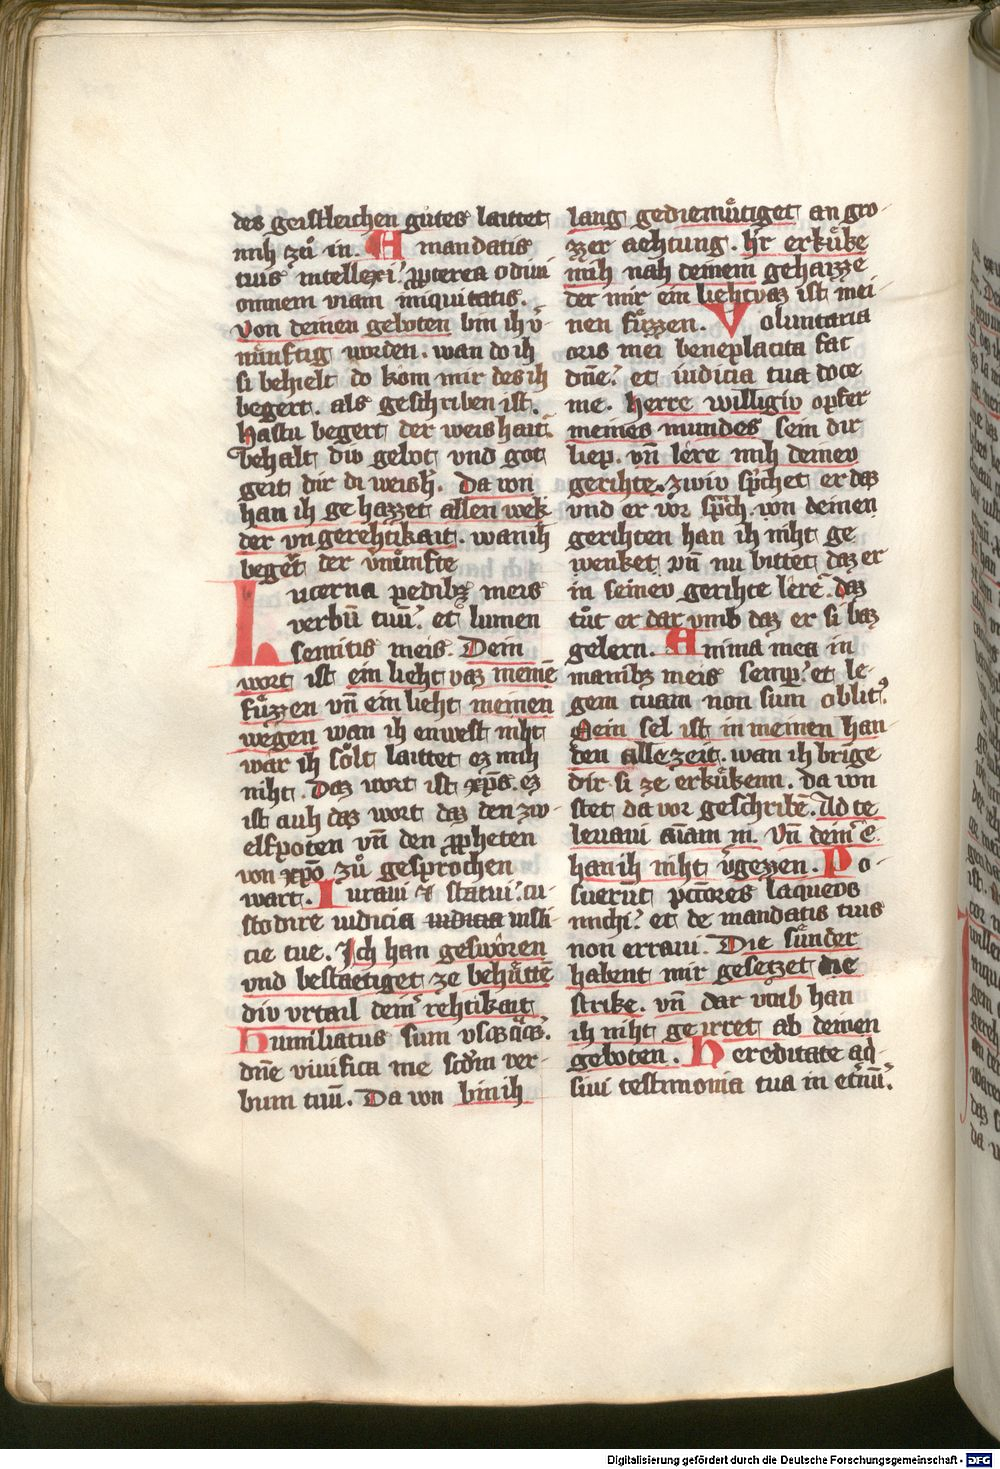 des geistleichen gůtes laittet
mih zů in. A mandatis
tuis intellexi: ꝓpterea odiui
omnem viam iniquitatis.
von deinen geboten bin ih v̄
nu̍nftig worden. wan do ih
si behielt do kom mir des ih
begert. als geschriben ist.
Hastu begert der weishait
behalt div gebot vnd got
geit dir di weish̄. Da von
han ih gehazzet allen wek
der vngerehtikait. wan ih
beger̄ der vnu̍mfte
Lucerna pedibꝫ meis
verbū tuū: et lumen
semitis meis. Dein
wort ist ein lieht vaz meinē
fu̍zzen vn̄ ein lieht meinen
wegen wan ih enwest niht
war ih so̍lt laittet ez mih
niht. Daz wort ist xp̄s. ez
ist auh daz wort daz den zw
elfpoten vn̄ den ꝓpheten
von xp̄o zů gesprochen
wart. Iuraui & statui: cu
stodire iudicia iudicia iusti
cie tue. Ich han gesworen
vnd bestaetiget ze behu̍ttē
div vrtail dein̄ rehtikait
Humiliatus sum vsqꝫ q̄qꝫ.
dn̄e viuifica me scd̄m ver
bum tuū. Da von bin ih
lang gediemu̍tiget an gro
zzer aehtung. h̄r erku̍ke
mih nah deinem gehaizze
der mir ein liehtvaz ist mei
nen fu̍zzen. Voluntaria
oris mei beneplacita fac
dn̄e: et iudicia tua doce
me. Herre willigiv opfer
meines mundes sein dir
liep. vn̄ lere mih deinev
gerihte. zwiv sp̄chet er daz
vnd er vor sp̄ch. von deinen
gerihten han ih niht ge
wenket vn̄ nu bittet daz er
in seinev gerihte lere. daz
tůt er dar vmb daz er si baz
gelern. Anima mea in
manibꝫ meis semp̄: et le
gem tuam non sum oblit9
Mein sel ist in meinen han
den allezeit. wan ih bringe
dir si ze erku̍kenn. da von
stet da vor geschribē. Ad te
leuaui aīam m̄. Vn̄ dein̄ e
han ih niht v̄gezzen. Po
suerūt pctōres laqueos
michi: et de mandatis tuis
non erraui. Die su̍nder
habent mir gesetzet die
strike. vn̄ dar vmb han
ih niht geirret ab deinen
geboten. Hereditate ad
siui testimonia tua in et̄nū.
Digitalisierung gefördert durch die Deutsche Forschungsgemeinschaft - DFG